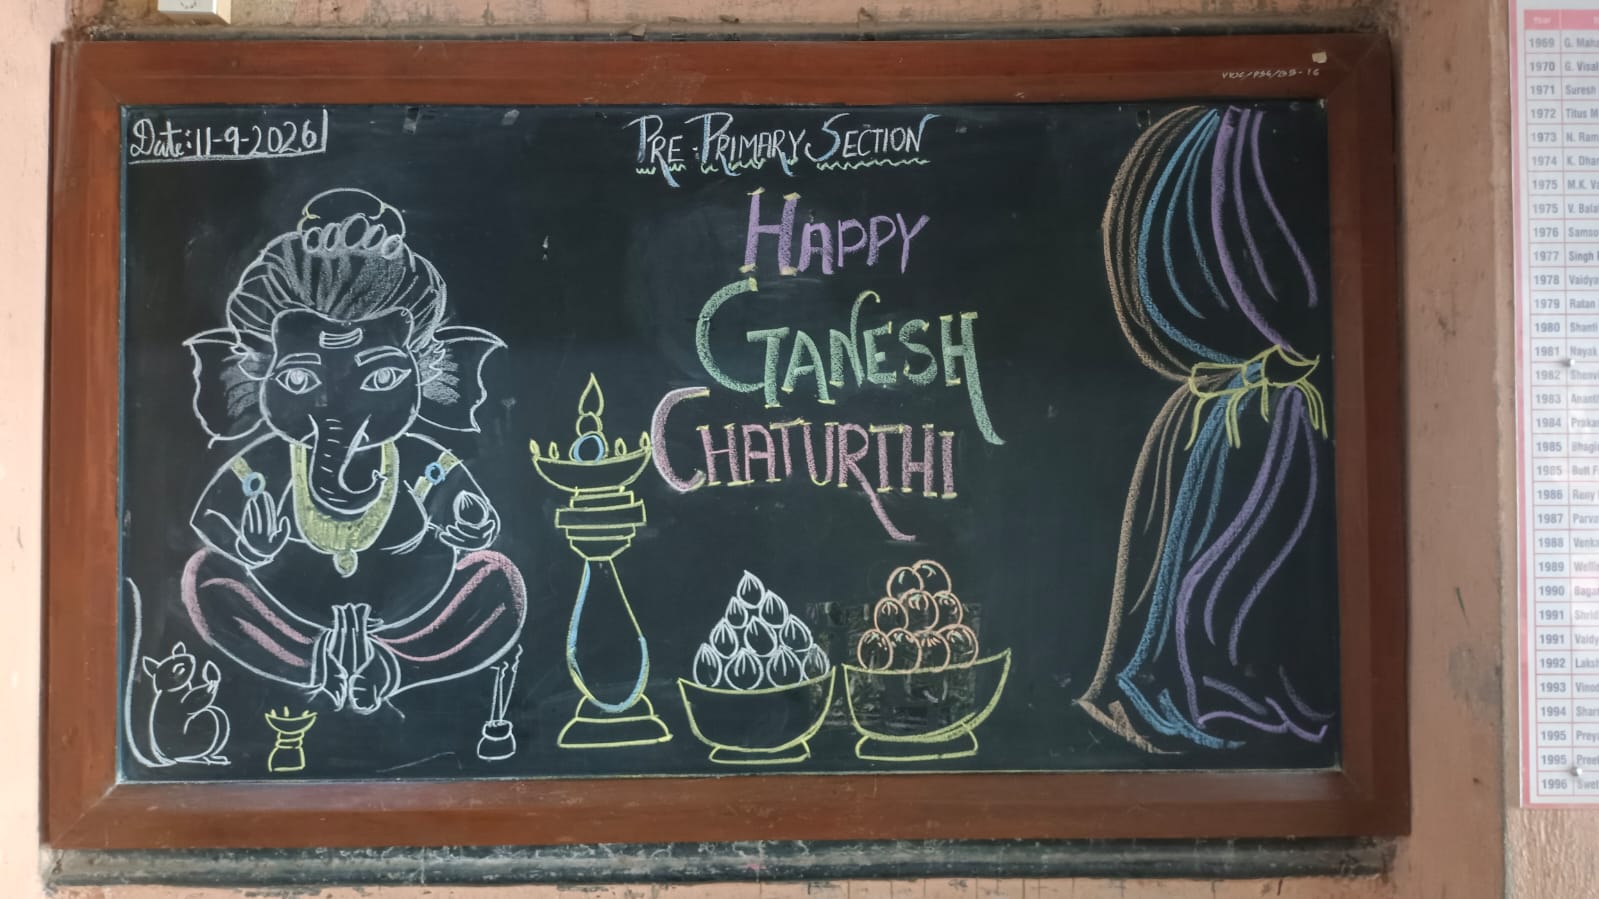 Date: 11-9-2026
PRE-PRIMARY SECTION
HAPPY
GANESH
CHATURTHI
Year
1969 G. Maha
1970 G. Visal
1971 Suresh
1972 Titus M
1973 N. Ram
1974 K. Dhar
1975 M.K. Va
1975 V. Bala
1976 Samso
1977 Singh
1978 Vaidya
1979 Ratan
1980 Shanti
1981 Nayak
1982 Shenvi
1983 Ananth
1984 Prakas
1985 Bhagi
1985 Butt F
1986 Reny
1987 Parva
1988 Venka
1989 Welli
1990 Bagar
1991 Shrid
1991 Vaidy
1992 Laksh
1993 Vinod
1994 Shar
1995 Preya
1995 Preet
1996 Swet